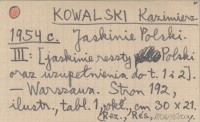 KOWALSKI Kazimierz
1954 c. Jaskinie Polski.
III: [jaskinie reszty Polski
oraz uzupełnienia do t. 1 i 2].
— Warszawa. Stron 192,
ilustr., tabl. 1, okł., cm 30 x 21.
Rez., Rés.